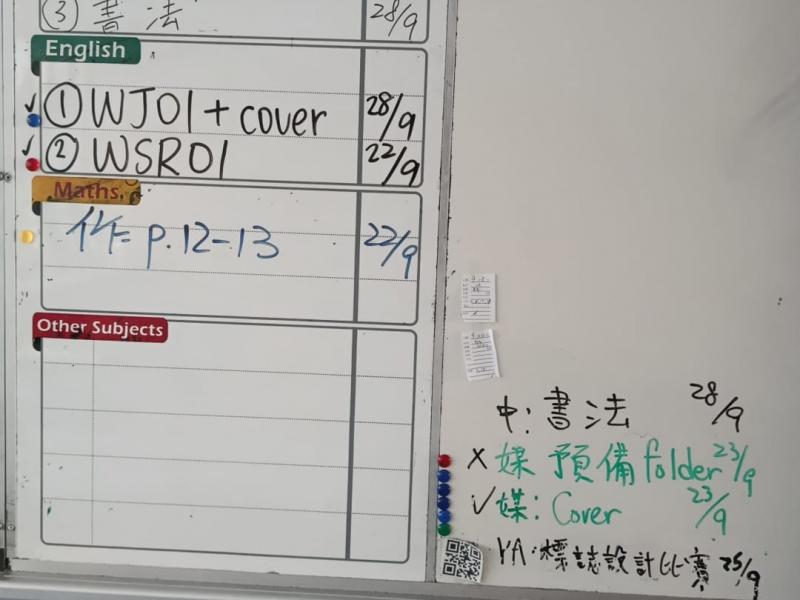 ③ 書法 28/9
English
✓ ① WJ01 + cover 28/9
✓ ② WSR01 22/9
Maths
作 p.12-13 22/9
Other Subjects
中: 書法 28/9
× 媒 預備 folder 23/9
✓ 媒: Cover 23/9
VA: 標誌設計比賽 25/9